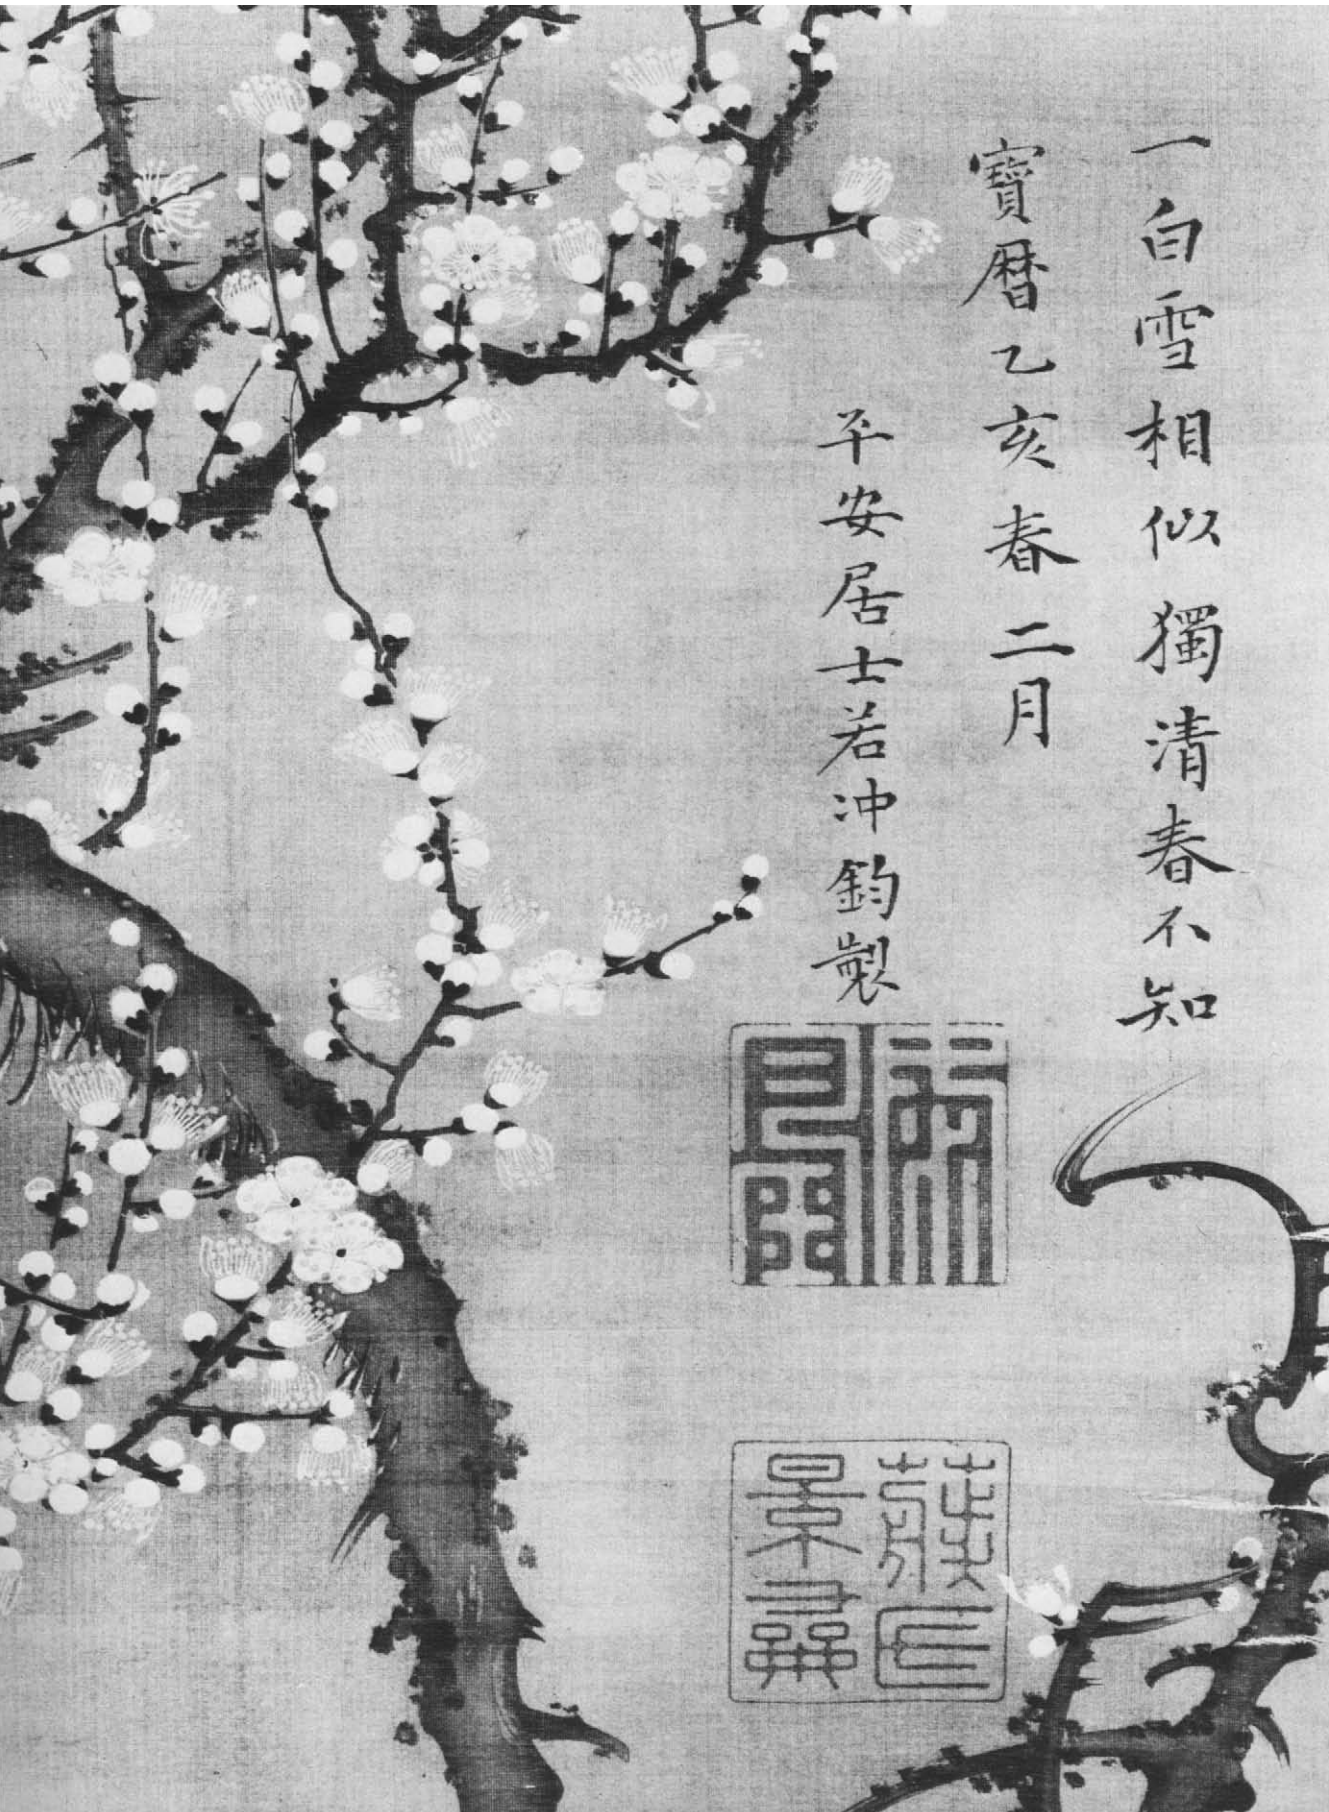 一白雪相似獨清春不知
寶暦乙亥春二月
平安居士若冲鈞製